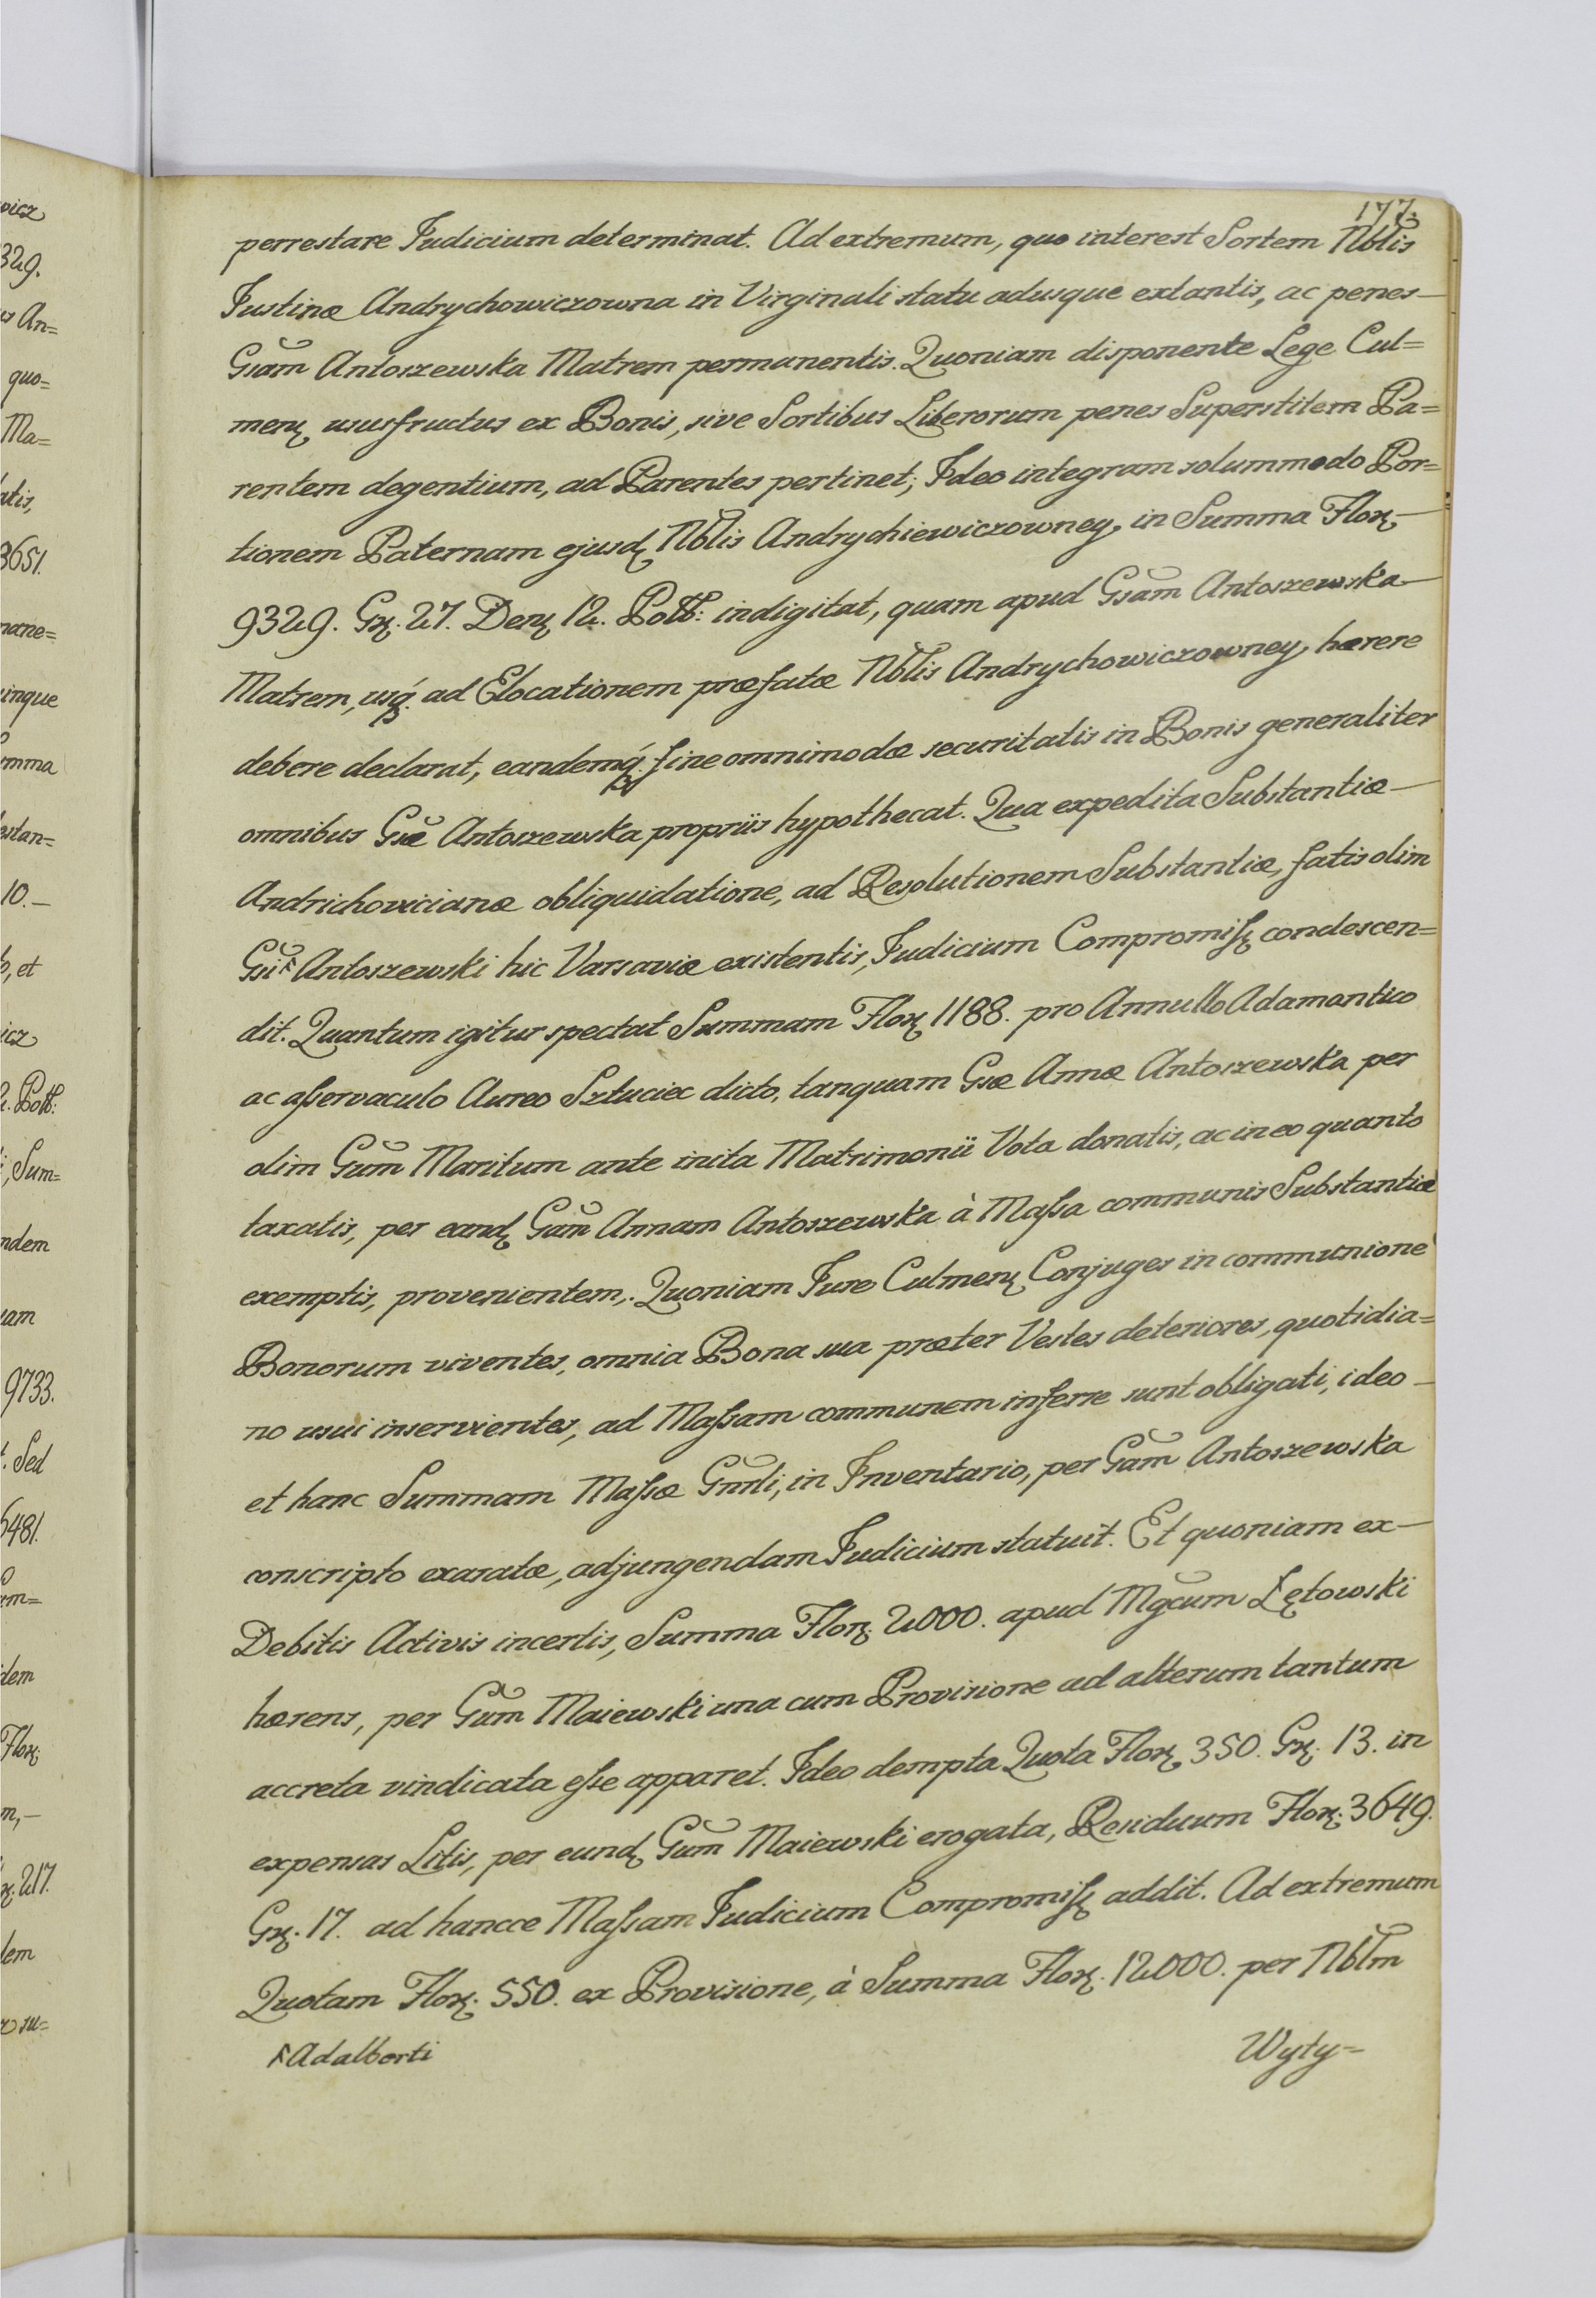 177.
perrestare Judicium determinat. Ad extremum, quo interest Sortem Nblis
Justinæ Andrychowiczowna in Virginali statu adusque extantis, ac penes
Gsam Antoszewska Matrem permanentis. Quoniam disponente Lege Cul=
menȝ ususfructus ex Bonis, sive Sortibus Liberorum penes Superstitem Pa=
rentem degentium, ad Parentes pertinet; Ideo integram solummodo Por=
tionem Paternam ejusdȝ Nblis Andrychiewiczowney, in Summa Florȝ
9329. Grȝ. 27. Denȝ 12. Poll: indigitat, quam apud Gsam Antoszewska
Matrem, usq́ȝ. ad Elocationem præfatæ Nblis Andrychowiczowney, hærere
debere declarat, eandemq́ȝ. fine omnimodæ securitatis in Bonis generaliter
omnibus Gsæ Antoszewska propriis hypothecat. Qua expedita Substantiæ
Andrichovicianæ obliquidatione, ad Resolutionem Substantiæ, fatis olim
Gsi ^ Antoszewski hic Varsaviæ existentis, Judicium Compromiſsȝ condescen=
dit. Quantum igitur spectat Summam Florȝ 1188. pro Annullo Adamantico
ac aſservaculo Aureo Sztuciec dicto, tanquam Gsæ Annæ Antoszewska per
olim Gsum Maritum ante inita Matrimonii Vota donatis, ac in eo quanto
taxatis, per eandȝ Gsam Annam Antoszewska à Maſsa communis Substantiæ
exemptis, provenientem,. Quoniam Jure Culmenȝ Conjuges in communione
Bonorum viventes, omnia Bona sua præter Vestes deteriores, quotidia=
no usui inservientes, ad Maſsam communem inferre sunt obligati, ideo
et hanc Summam Maſsæ Gnrli, in Inventario, per Gsam Antoszewska
conscripto exaratæ, adjungendam Judicium statuit. Et quoniam ex
Debitis Activis incertis, Summa Florȝ. 2000. apud Mgcum Łętowski
hærens, per Gsum Maiewski una cum Provisione ad alterum tantum
accreta vindicata eſse apparet. Ideo dempta Quota Florȝ 350. Grȝ. 13. in
expensas Litis, per eundȝ Gsum Maiewski erogata, Residuum Florȝ. 3649.
Grȝ. 17. ad hancce Maſsam Judicium Compromiſsȝ addit. Ad extremum
Quotam Florȝ. 550. ex Provisione, à Summa Florȝ. 12000. per Nblm
^ Adalberti
Wyty=